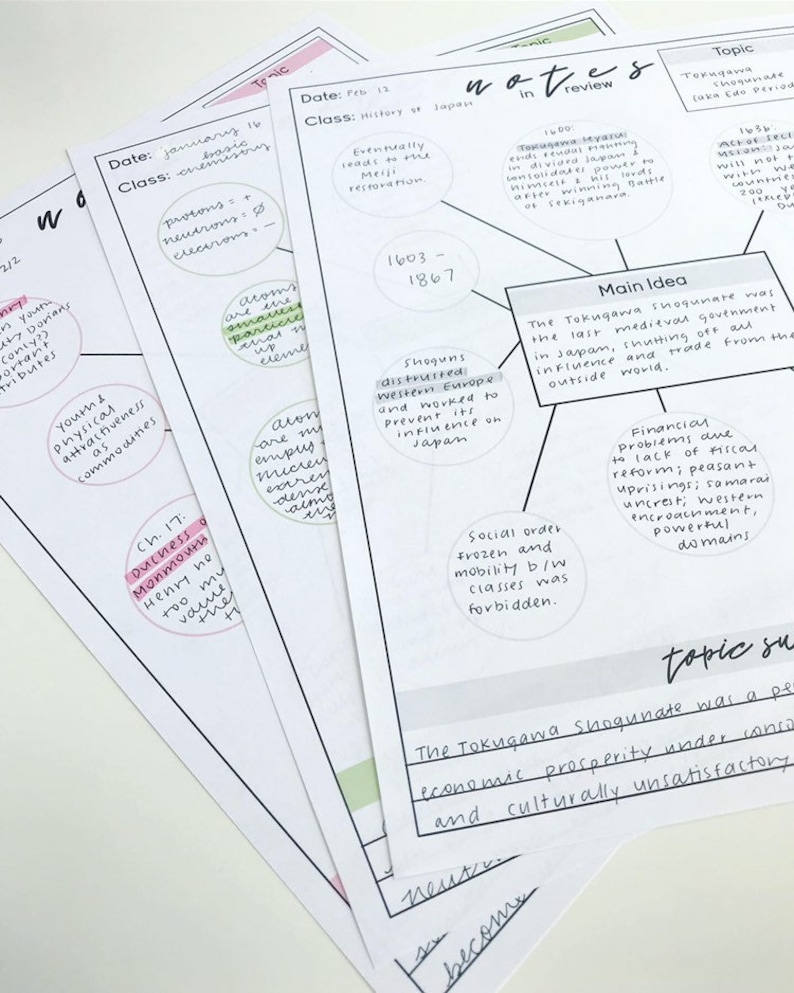 notes
in review
Date: Feb 12
Class: History of Japan
Topic
Tokugawa
Shogunate
(aka Edo Period
Eventually
leads to the
Meiji
restoration.
1600:
Tokugawa Ieyasu
ends feudal fighting
in divided Japan &
consolidates power to
himself & his lords
after winning Battle
of Sekigahara.
1636:
Act of Secl
usion: Ja
will not t
with w
countries
200 y
(excep
Du
1603 -
1867
Main Idea
The Tokugawa Shogunate was
the last medieval govenment
in Japan, shutting off all
influence and trade from the
outside world.
Shoguns
distrusted
Western Europe
and worked to
prevent its
influence on
Japan
Social order
frozen and
mobility b/w
classes was
forbidden.
Financial
problems due
to lack of fiscal
reform; peasant
uprisings; samarai
uncrest; Western
encroachment,
powerful
domains
topic su
The Tokugawa Shogunate was a pe
economic prosperity under conso
and culturally unsatisfactory
Topic
Date: January 16
Class: basic
chemistry
protons = +
neutrons = Ø
electrons = -
atoms
are the
smalles
particle
that m
up
eleme
atom
are m
empty
nucleu
extrem
dense
almo
the
neutr
Topic
no
212
enry
youn
ty Dorians
(cont??)
portant
tributes
Youth &
physical
attractiveness
as
commodities
Ch. 17:
Duchess o
Monmouth
Henry he
too mu
value
the
th
become